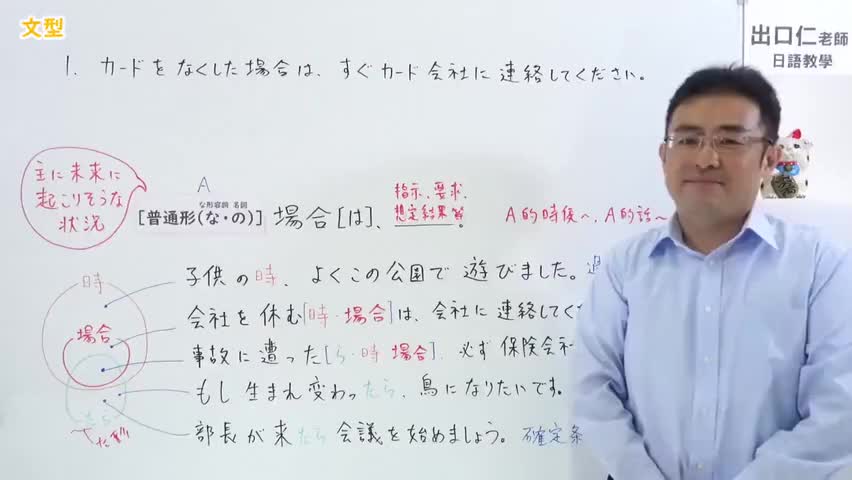 文型
出口仁老師
日語教學
1. カードをなくした場合は、すぐカード会社に連絡してください。
主に未来に
起こりそうな
状況
A
な形容詞 名詞
[普通形(な・の)] 場合[は]、
指示、要求、
想定結果等。
A的時候~、A的話~
時
場合
たら
子供の時、よくこの公園で遊びました。過
会社を休む[時・場合]は、会社に連絡してくだ
事故に遭った[ら・時 場合]、必ず保険会社
もし生まれ変わったら、鳥になりたいです。
部長が来たら会議を始めましょう。確定条